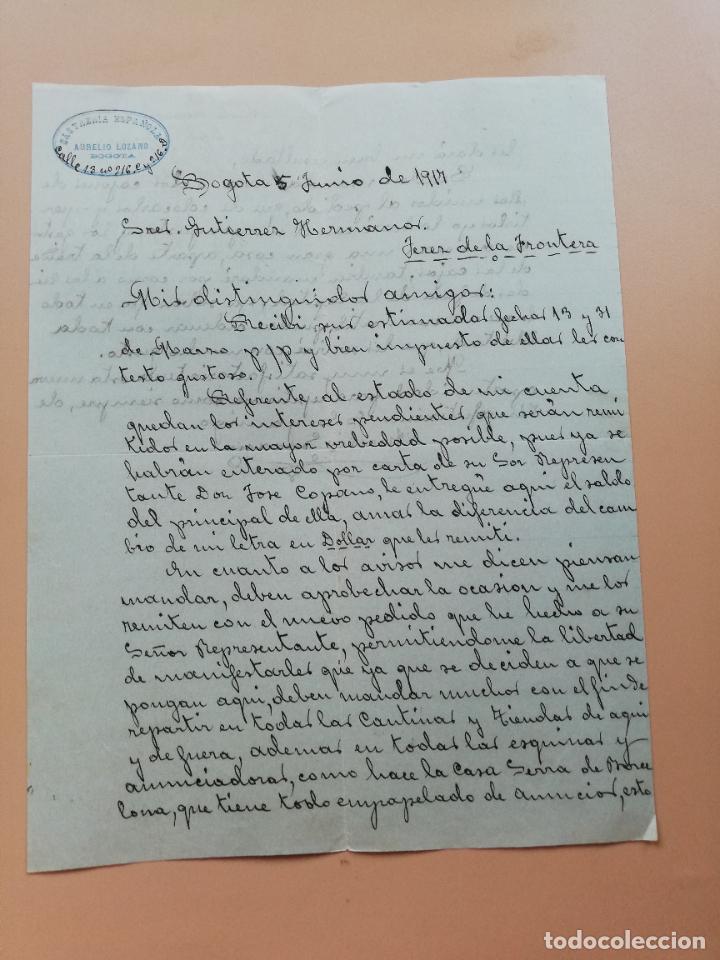 SASTRERÍA ESPAÑOLA
AURELIO LOZANO
BOGOTA
Calle 13 nº 216 C y 216 D
Bogota 5 Junio de 1917
Sres. Gutierrez Hermanos.
Jerez de la Frontera
Mis distinguidos amigos:
Recibi sus estimadas fechas 13 y 31
de Marzo p/p y bien impuesto de ellas les con
testo gustoso.
Referente al estado de mi cuenta
quedan los intereses pendientes que serán remi
tidos en la mayor brebedad posible, pues ya se
habrán enterado por carta de su Sor Represen
tante Don Jose Copano, le entregué aqui el saldo
del principal de ella, a mas la diferencia del cam
bio de mi letra en Dollar que les remití.
En cuanto a los avisos me dicen piensan
mandar, deben aprobechar la ocasion y me los
remiten con el nuevo pedido que he hecho a su
Señor Representante, permitiendome la libertad
de manifestarles que ya que se deciden a que se
pongan aqui, deben mandar muchos con el fin de
repartir en todas las Cantinas y Tiendas de aqui
y de fuera, ademas en todas las esquinas y
anunciadoras, como hace la Casa Serra de Barce
lona, que tiene todo empapelado de anuncios, esto
todocoleccion
todocoleccion.net